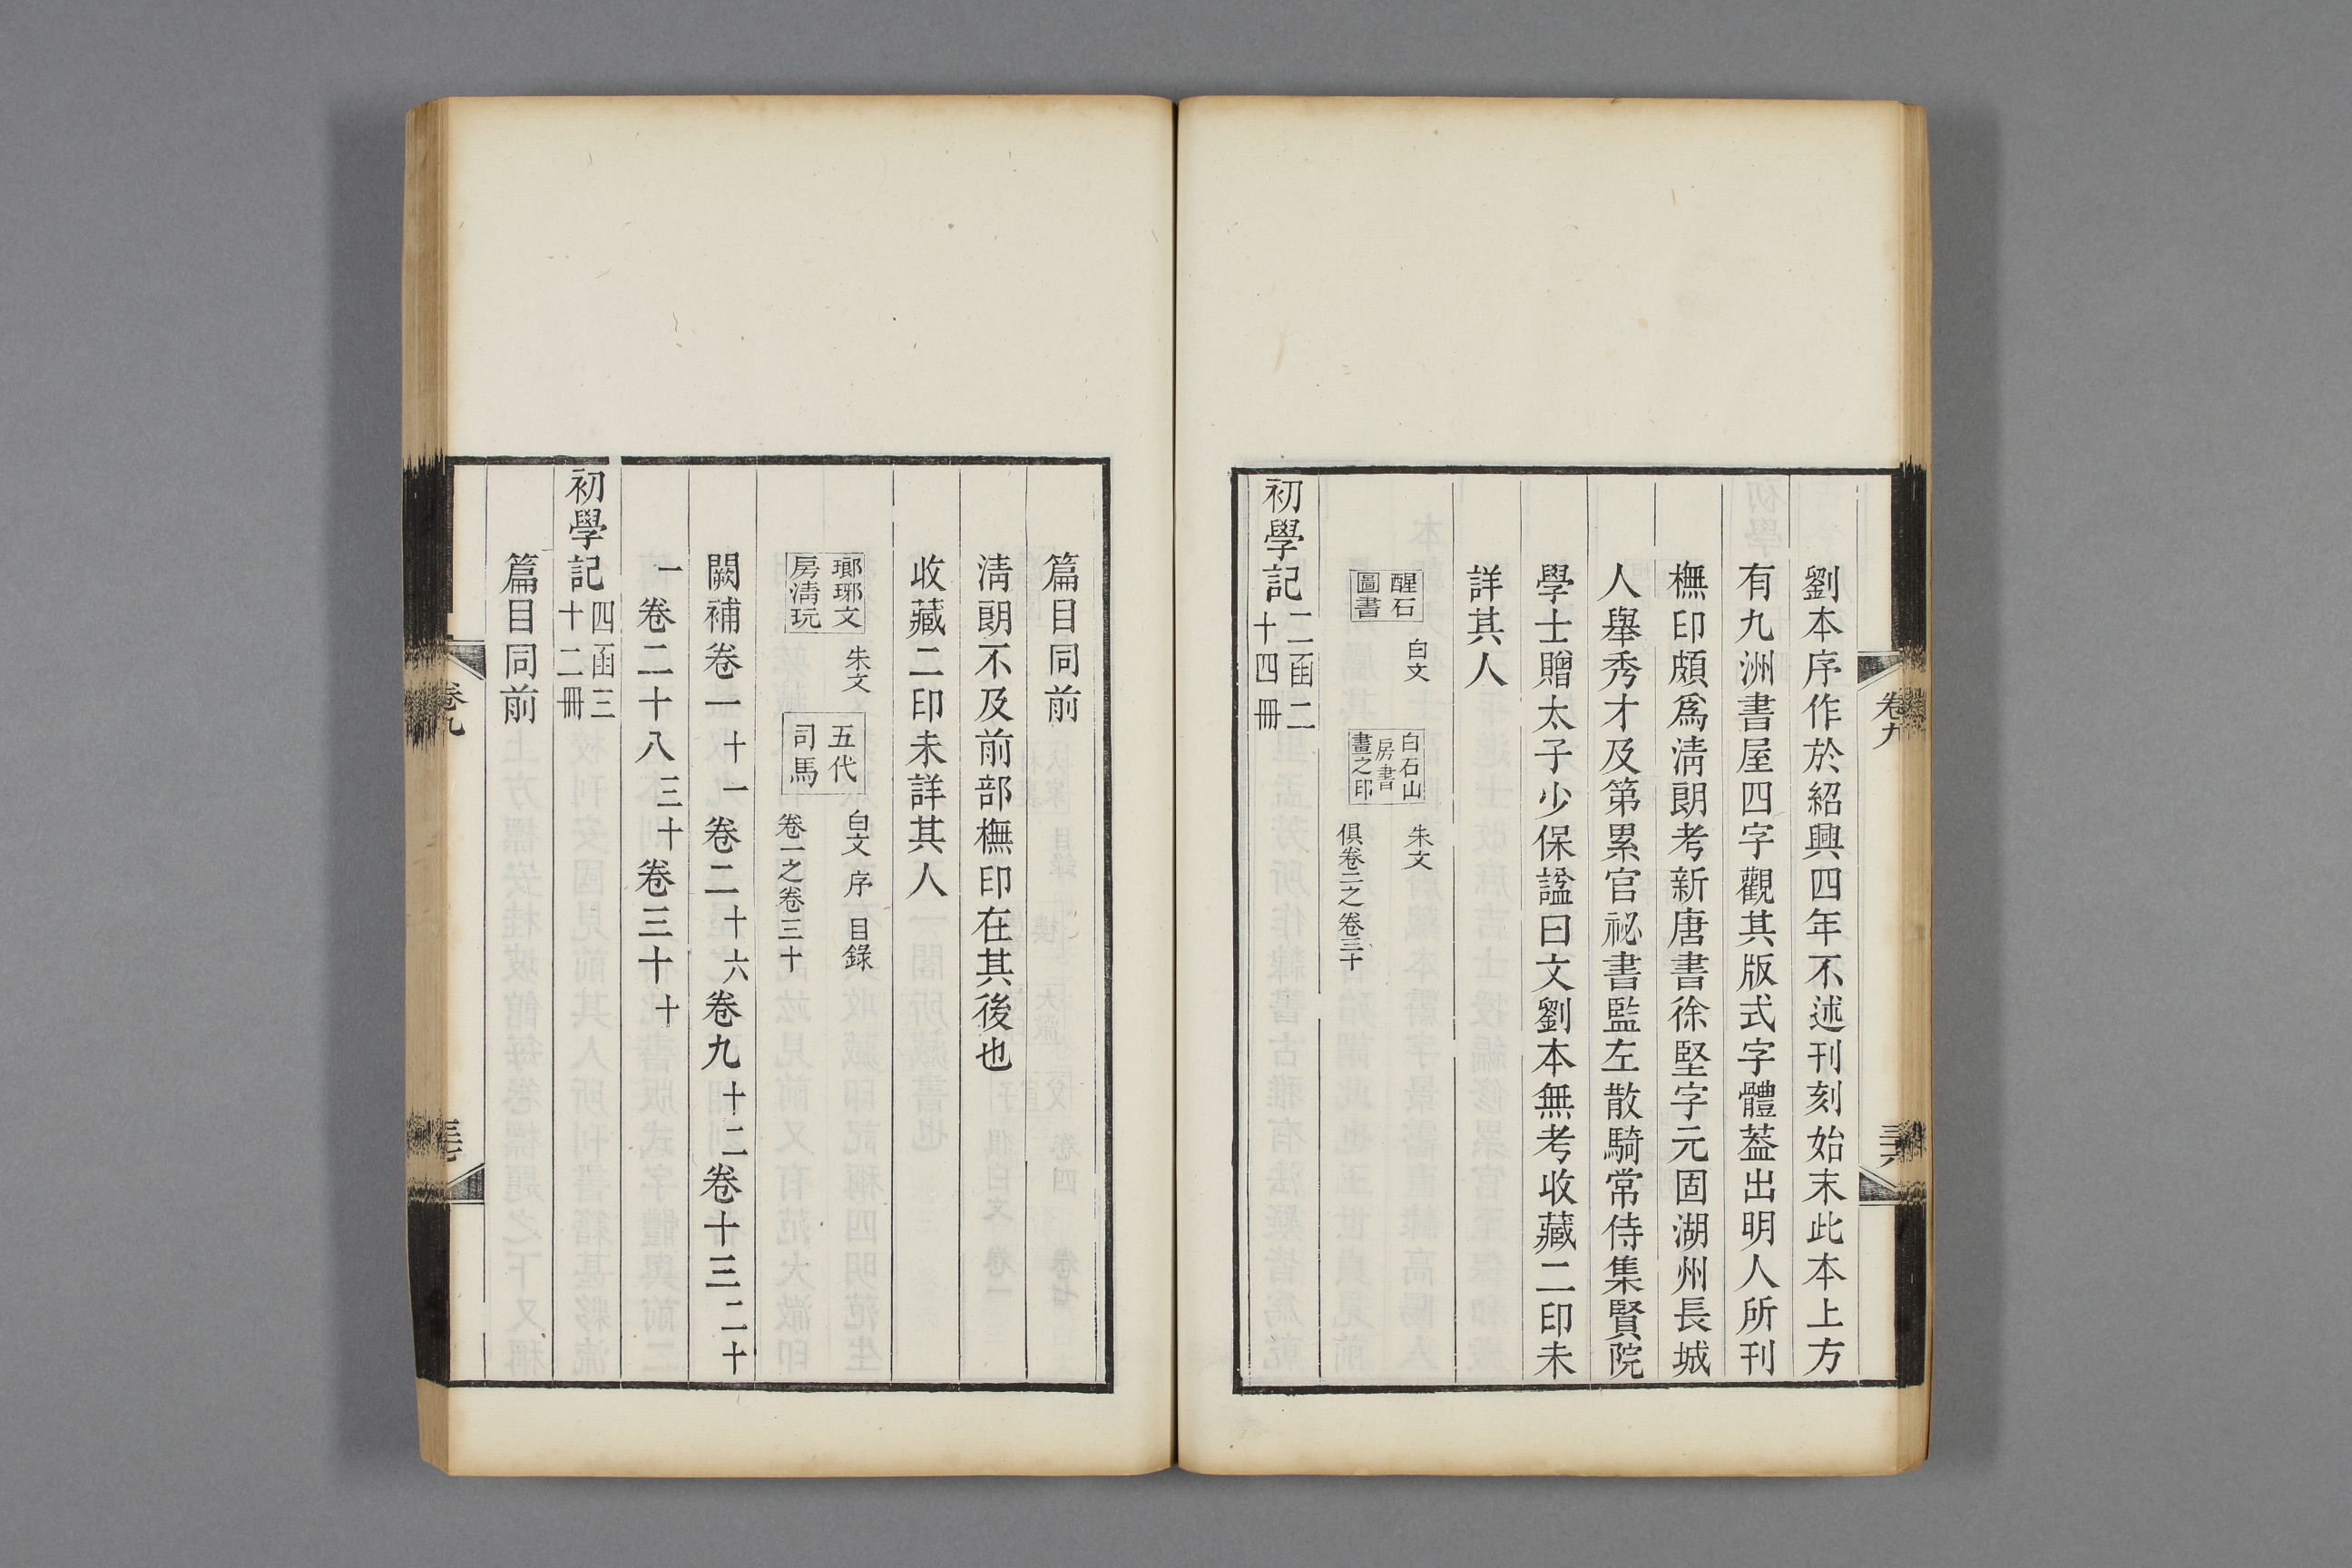 劉本序作於紹興四年不述刊刻始末此本上方
有九洲書屋四字觀其版式字體葢出明人所刊
橅印頗爲淸朗考新唐書徐堅字元固湖州長城
人舉秀才及第累官祕書監左散騎常侍集賢院
學士贈太子少保諡曰文劉本無考收藏二印未
詳其人
醒石圖書 白文 白石山房書畫之印 朱文 俱卷二之卷三十
初學記 二函二十四冊
卷九
篇目同前
淸朗不及前部橅印在其後也
收藏二印未詳其人
瑯琊文房淸玩 朱文 五代司馬 白文 序 目錄 卷一之卷三十
闕補卷一 十一 卷二 十六 卷九 十二 卷十三 二十
一 卷二十八 三十 卷三十 十
初學記 四函三十二冊
篇目同前
卷九